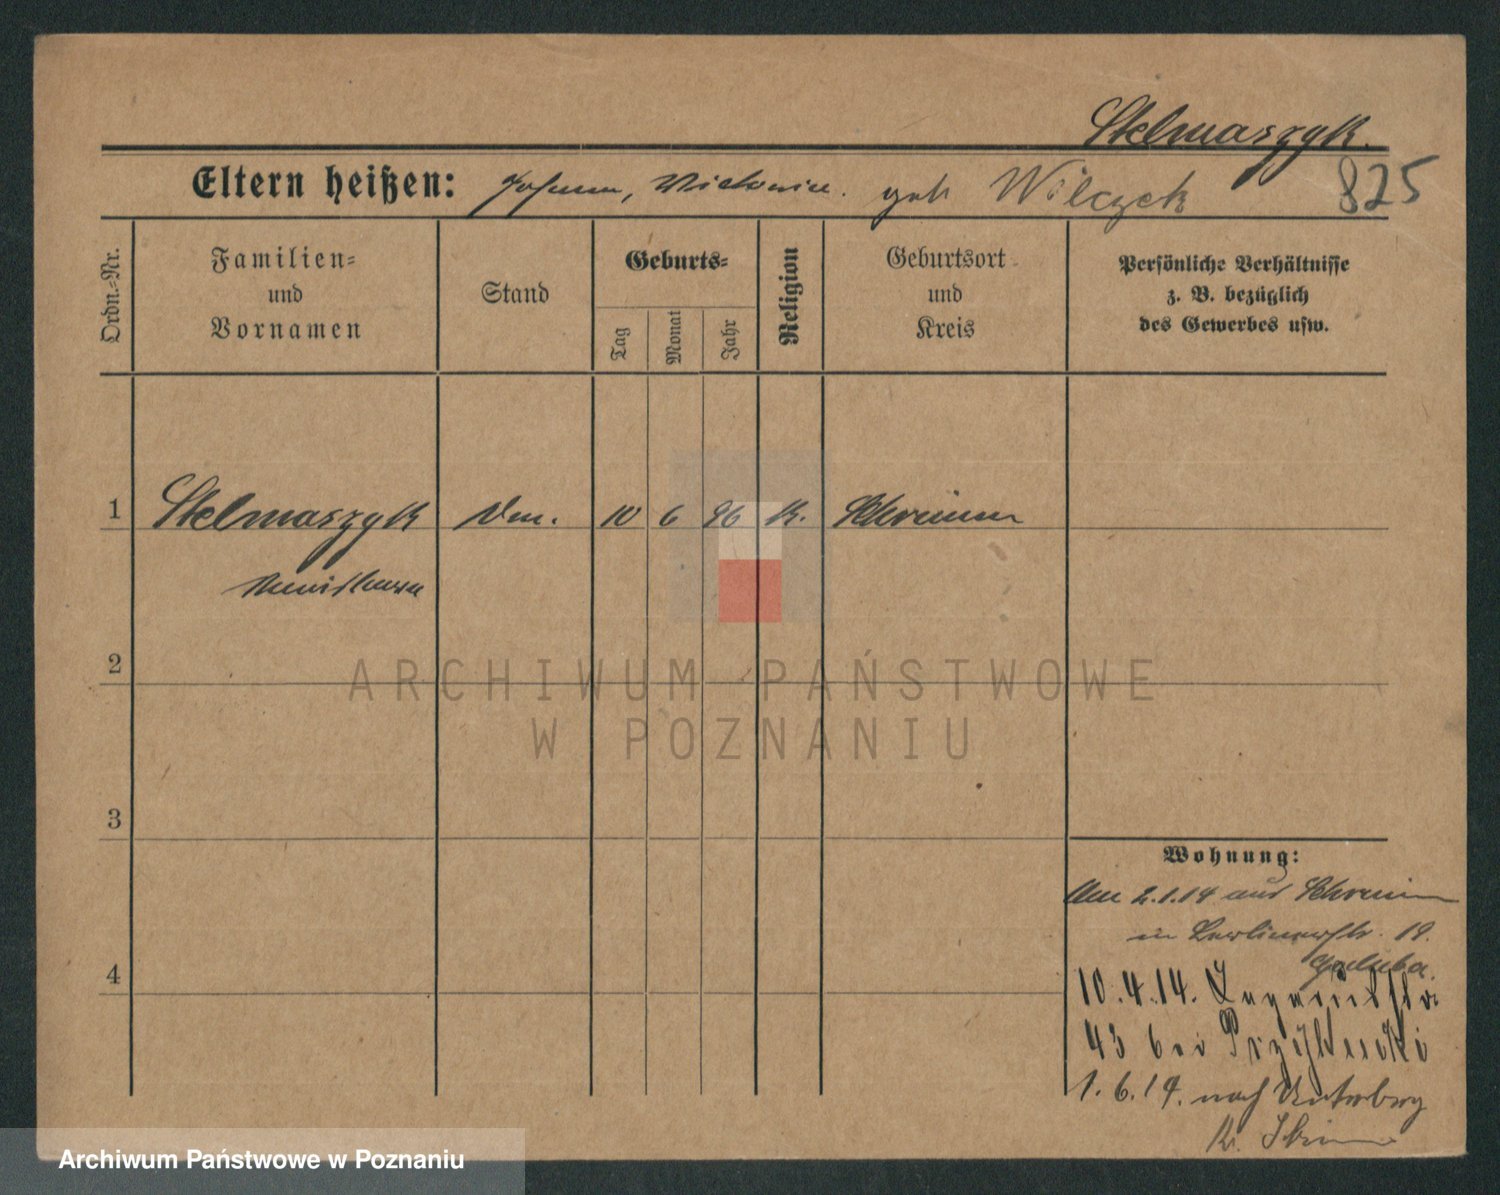 Stelmaszyk.
Eltern heißen: Johann, Victoria. geb Wilczek 825
Ordn.-Nr.
Familien-
und
Vornamen
Stand
Geburts-
Tag
Monat
Jahr
Religion
Geburtsort
und
Kreis
Persönliche Verhältnisse
z. B. bezüglich
des Gewerbes usw.
1 Stelmaszyk 10 6 96 K. Schrimm
2
ARCHIWUM PAŃSTWOWE
W POZNANIU
3
Wohnung:
Am 2.1.14 aus Schrimm
in Berlinerstr. 19.
4
10.4.14.
43 bei
1.6.14. nach Unterberg
Kr.
Archiwum Państwowe w Poznaniu